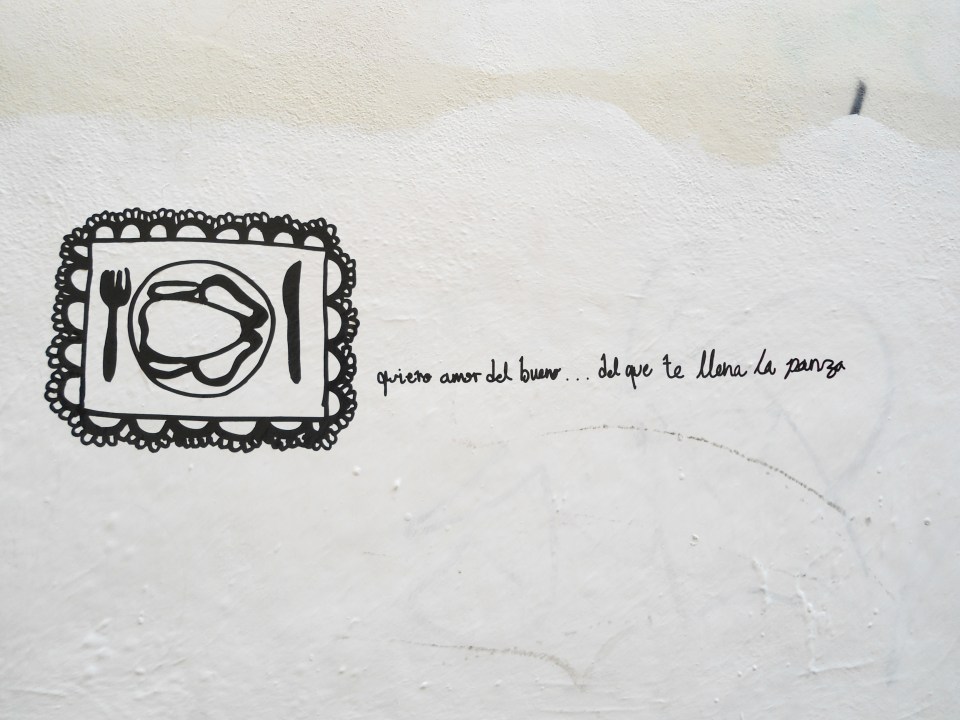 quiero amor del bueno... del que te llena la panza